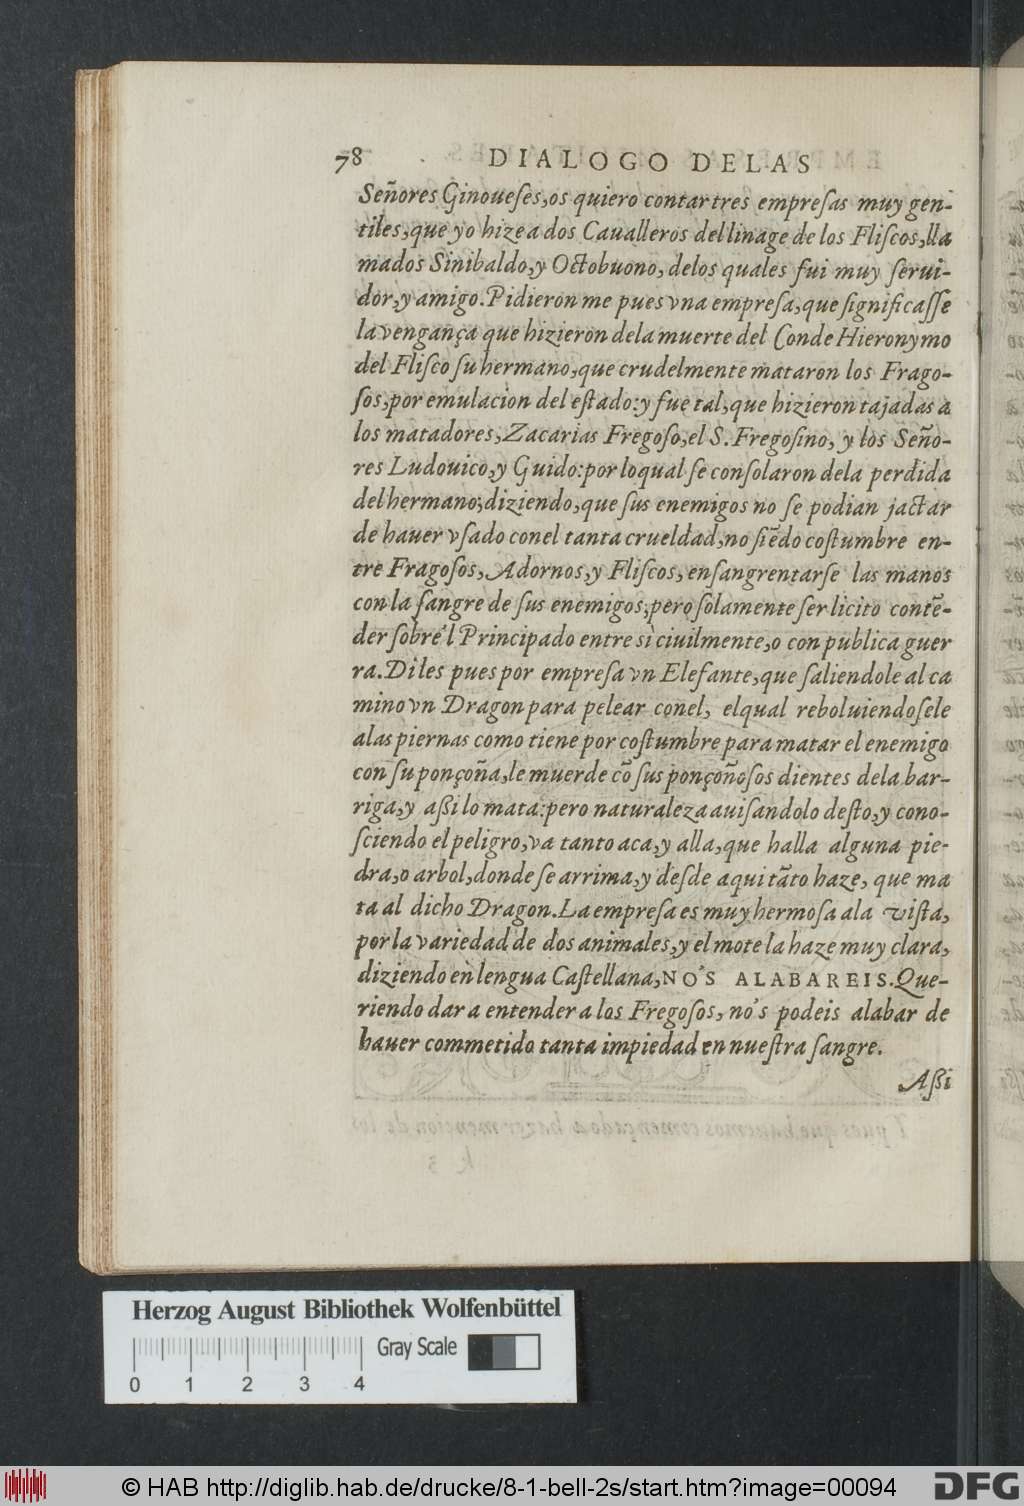 78 DIALOGO DELAS
Señores Ginoueſes,os quiero contar tres empreſas muy gen-
tiles,que yo hize a dos Caualleros del linage de los Fliſcos,lla
mados Sinibaldo,y Octobuono, delos quales fui muy ſerui-
dor,y amigo.Pidieron me pues vna empreſa,que ſignificaſſe
la vengança que hizieron dela muerte del Conde Hieronymo
del Fliſco ſu hermano,que crudelmente mataron los Frago-
ſos,por emulaciòn del eſtado:y fue tal,que hizieron tajadas a
los matadores,Zacarias Fregoſo,el S. Fregoſino, y los Seño-
res Ludouico,y Guido:por loqual ſe conſolaron dela perdida
del hermano;diziendo,que ſus enemigos no ſe podian jactar
de hauer vſado conel tanta crueldad,no ſiẽdo coſtumbre en-
tre Fragoſos, Adornos,y Fliſcos, enſangrentarſe las manos
con la ſangre de ſus enemigos;pero ſolamente ſer licito contẽ-
der ſobre'l Principado entre sì ciuilmente,o con publica guer
ra.Diles pues por empreſa vn Elefante,que ſaliendole al ca
mino vn Dragon para pelear conel, elqual reboluiendoſele
a las piernas como tiene por coſtumbre para matar el enemigo
con ſu ponçoña,le muerde cõ ſus ponçoñoſos dientes dela bar-
riga,y aßi lo mata:pero naturaleza auiſandolo deſto,y cono-
ſciendo el peligro,va tanto aca,y alla,que halla alguna pie-
dra,o arbol,donde ſe arrima,y deſde aqui tãto haze, que ma
ta al dicho Dragon.La empreſa es muy hermoſa ala viſta,
por la variedad de dos animales,y el mote la haze muy clara,
diziendo en lengua Caſtellana,NO'S ALABAREIS.Que-
riendo dar a entender a los Fregoſos, no's podeis alabar de
hauer commetido tanta impiedad en nueſtra ſangre.
Aßi
Herzog August Bibliothek Wolfenbüttel
Gray Scale
0 1 2 3 4
© HAB http://diglib.hab.de/drucke/8-1-bell-2s/start.htm?image=00094
DFG